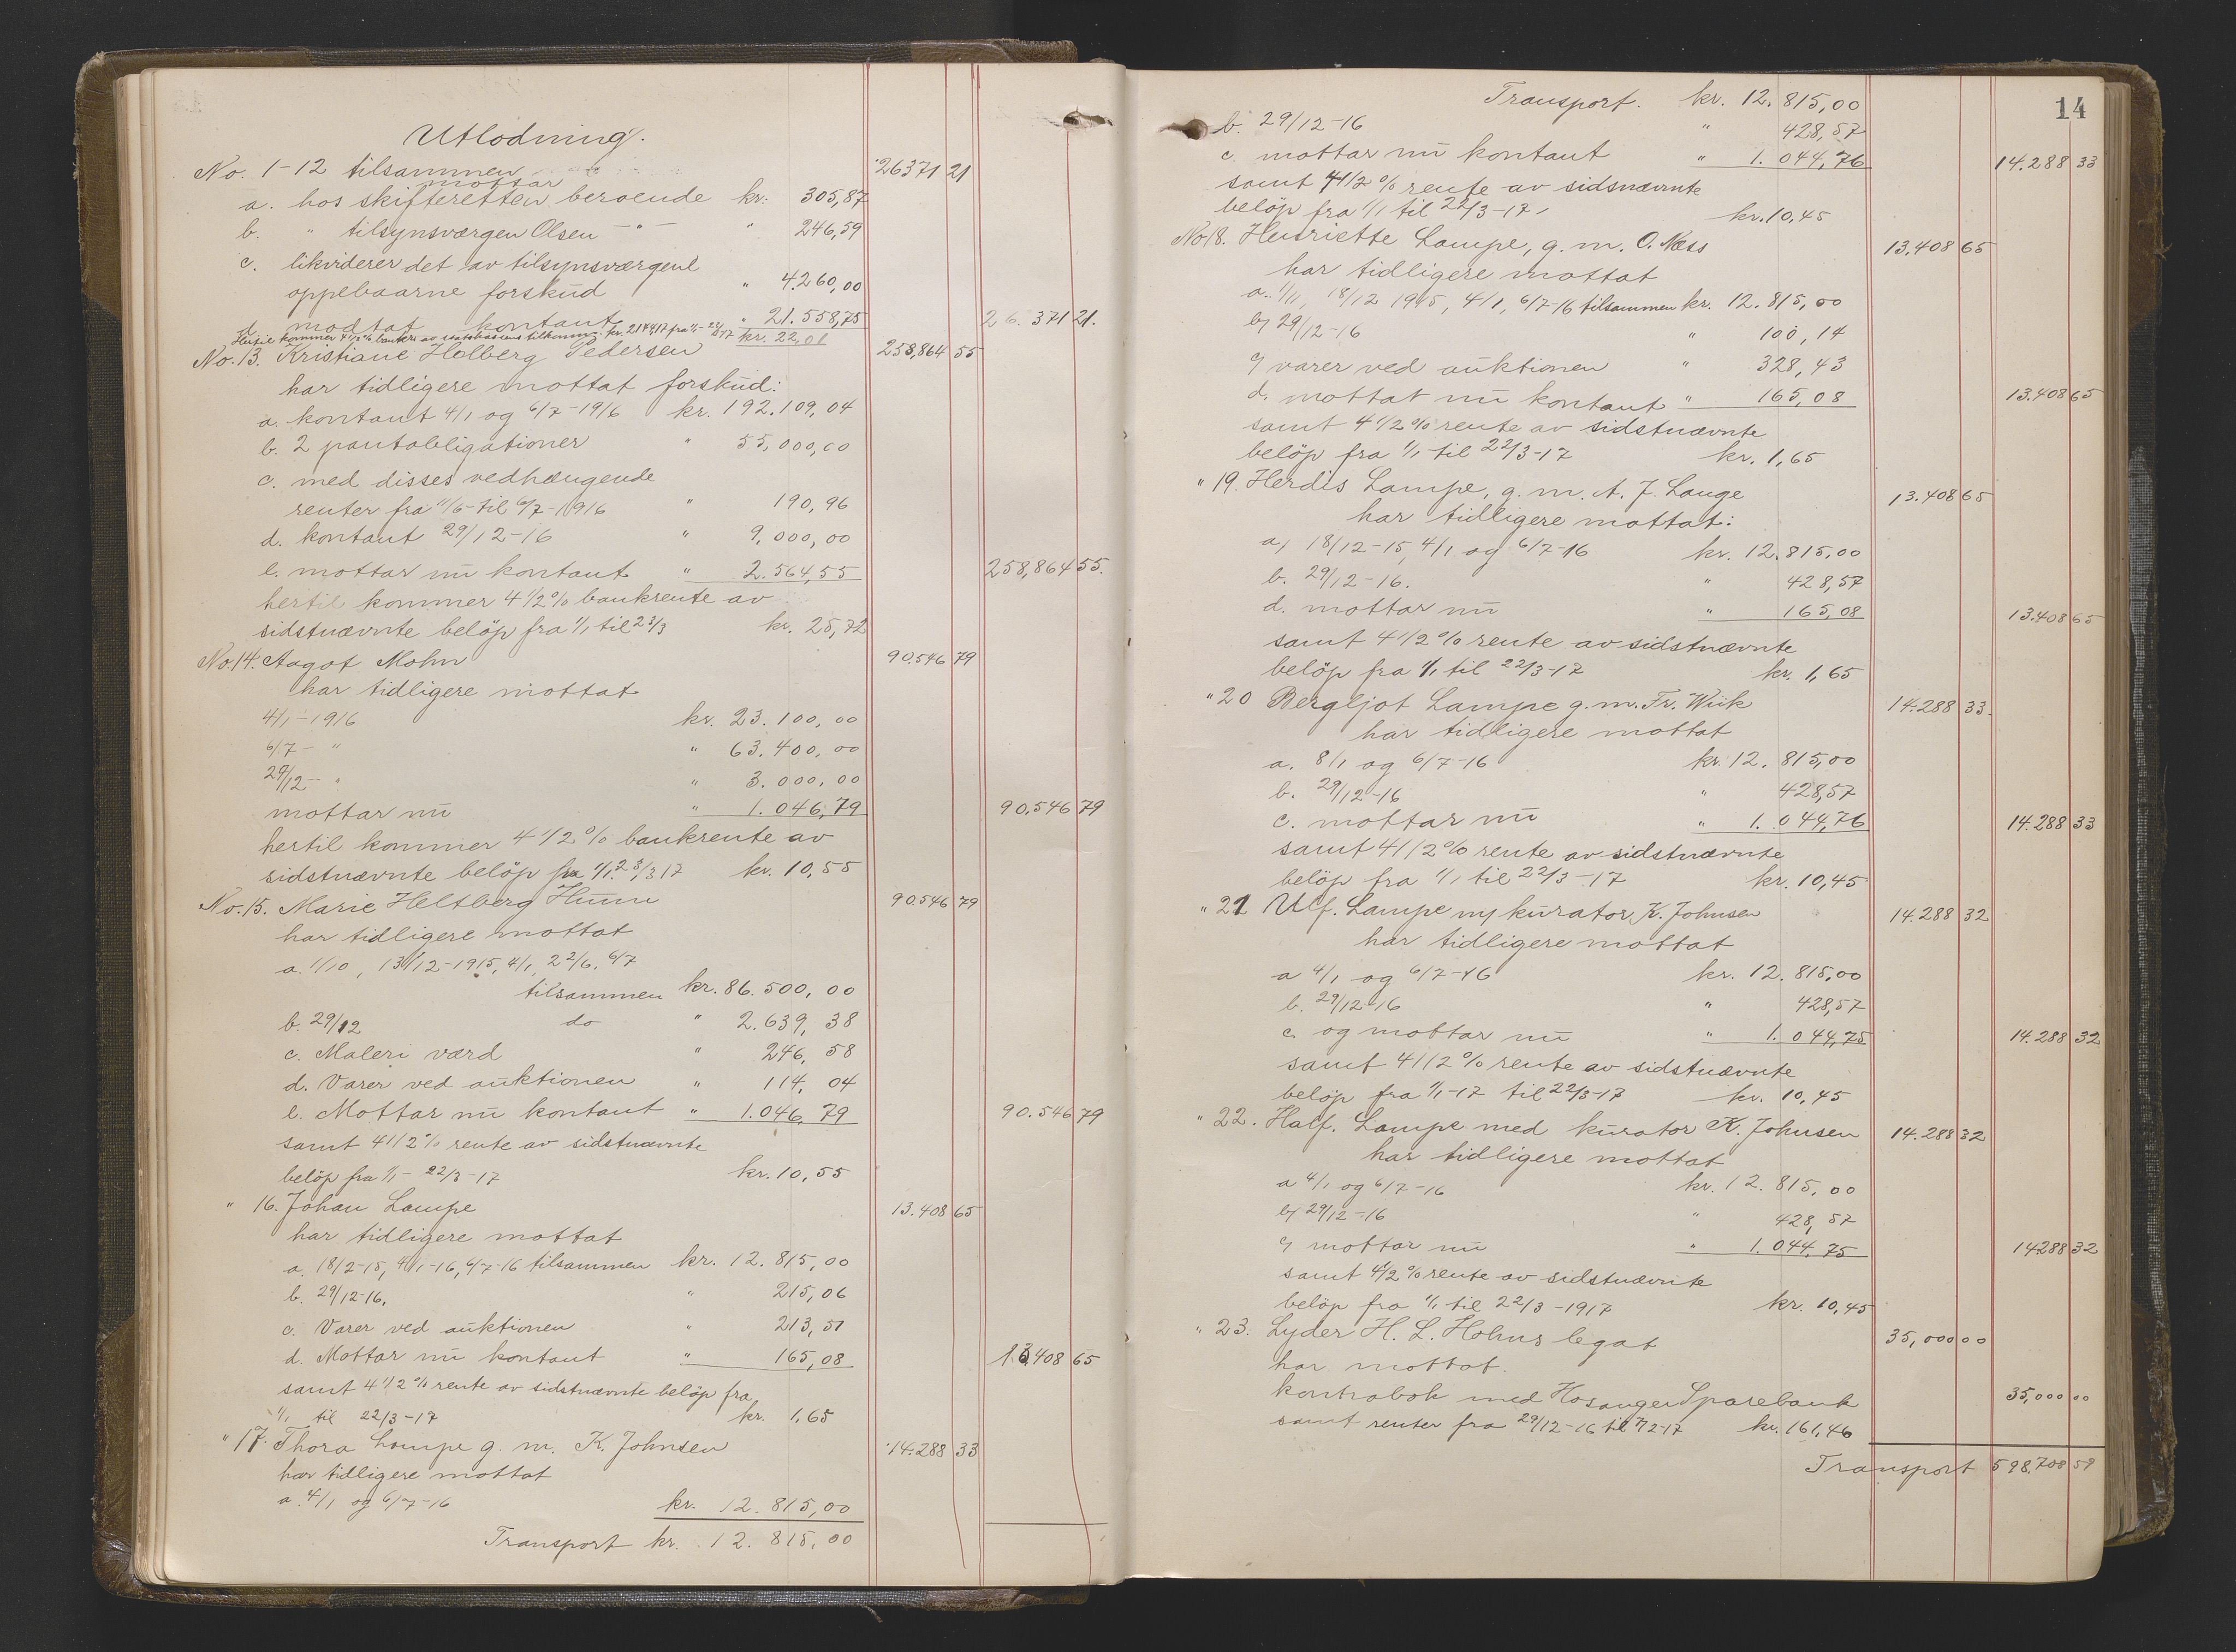 Utlodning.
No. 1-12 tilsammen 26371 21
mottar
a. hos skifteretten beroende kr. 305,87
b. " tilsynsværgen Olsen - " - " 246,59
c. likviderer det av tilsynsværgen
oppebaarne forskud " 4.260,00
d. modtat kontant " 21.558,75 26.371 21.
Hertil kommer 4 1/2 % bankr. av kr. 217417 fra 1/1 - 22/3-17 kr. 22,01
No. 13. Kristiane Holberg Pedersen 258,864 55
har tidligere mottat forskud:
a. kontant 4/1 og 6/7-1916 kr. 192.109,04
b. 2 pantobligationer " 55,000,00
c. med disses vedhængende
renter fra 11/6 til 6/7-1916 " 190,96
d. kontant 29/12-16 " 9,000,00
e. mottar nu kontant " 2.564,55 258,864 55.
hertil kommer 4 1/2 % bankrente av
sidstnævnte beløp fra 1/1 til 23/3 kr. 25,72
No. 14. Aagot Mohn 90.546 79
har tidligere mottat
4/1-1916 kr. 23.100,00
6/7 - " " 63.400,00
29/12 - " " 3.000,00
mottar nu " 1.046,79 90,546 79
hertil kommer 4 1/2 % bankrente av
sidstnævnte beløp fra 1/1 23/3 17 kr. 10,55
No. 15. Marie Heltberg Humm 90.546 79
har tidligere mottat
a. 1/10, 13/12-1915, 4/1, 22/6, 6/7
tilsammen kr. 86.500,00
b. 29/12 do " 2.639,38
c. Maleri værd " 246,58
d. Varer ved auktionen " 114,04
e. Mottar nu kontant " 1.046,79 90.546 79
samt 4 1/2 % rente av sidstnævnte
beløp fra 1/1 - 22/3-17 kr. 10,55
" 16. Johan Lampe 13.408 65
har tidligere mottat
a. 18/12-15, 4/1-16, 6/7-16 tilsammen kr. 12.815,00
b. 29/12-16. " 215,06
c. Varer ved auktionen " 213,51
d. Mottar nu kontant " 165,08 13,408 65
samt 4 1/2 % rente av sidstnævnte beløp fra
1/1 til 22/3-17 kr. 1,65
" 17. Thora Lampe g. m. K. Johnsen 14.288 33
har tidligere mottat
a. 4/1 og 6/7-16 kr. 12.815,00
Transport kr. 12.815,00
14
Transport. kr. 12.815,00
b. 29/12-16 " 428,57
c. mottar nu kontant " 1.044,76 14.288 33
samt 4 1/2 % rente av sidsnævnte
beløp fra 1/1 til 22/3-17 kr. 10,45
No 18. Henriette Lampe, g. m. O. Næss 13.408 65
har tidligere mottat
a. 1/11, 18/12 1915, 4/1, 6/7-16 tilsammen kr. 12.815,00
b) 29/12-16 " 100,14
c) varer ved auktionen " 328,43
d. mottat nu kontant " 165,08 13.408 65
samt 4 1/2 % rente av sidstnævnte
beløp fra 1/1 til 22/3-17 kr. 1,65
" 19. Herdis Lampe, g. m. A. J. Lange 13.408 65
har tidligere mottat:
a, 18/12-15, 4/1 og 6/7-16 kr. 12.815,00
b. 29/12-16. " 428,57
d. mottar nu " 165,08 13.408 65
samt 4 1/2 % rente av sidstnævnte
beløp fra 1/1 til 22/3-17 kr. 1,65
" 20 Bergljot Lampe g. m. Fr. Wiik 14.288 33.
har tidligere mottat
a. 8/1 og 6/7-16 kr. 12.815,00
b. 29/12-16 " 428,57
c. mottar nu " 1.044,76 14.288 33
samt 4 1/2 % rente av sidstnævnte
beløp fra 1/1 til 22/3-17 kr. 10,45
" 21 Ulf. Lampe m/ kurator K. Johnsen 14.288 32
har tidligere mottat
a 4/1 og 6/7-16 kr. 12.815,00
b. 29/12-16 " 428,57
c. og mottar nu " 1.044,75 14.288 32
samt 4 1/2 % rente av sidstnævnte
beløp fra 1/1-17 til 22/3-17 kr. 10,45
" 22. Half. Lampe med kurator K. Johnsen 14.288 32
har tidligere mottat
a 4/1 og 6/7-16 kr. 12.815,00
b) 29/12-16 " 428,57
c) mottar nu " 1.044,75 14288 32
samt 4 1/2 % rente av sidstnævnte
beløp fra 1/1 til 22/3-1917 kr. 10,45
" 23. Lyder H. L. Holms legat 35,000 00
har mottat.
kontrabok med Hosanger Sparebank 35,000 00
samt renter fra 29/12-16 til 7/2-17 kr. 161,46
Transport 598.708 59